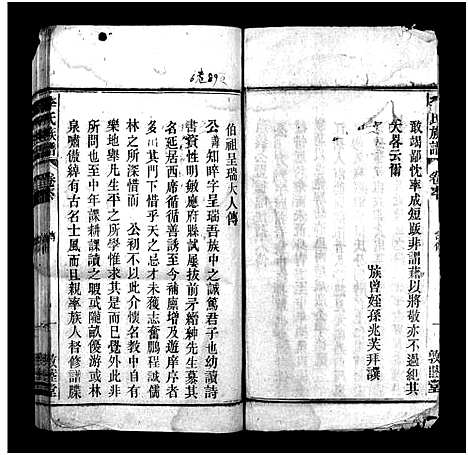 氏族譜
敢竭鄙忱率成短版非謂藉以將敬亦不過紀其
大畧云爾
族曾姪孫兆芙拜譔
敦睦堂
伯祖呈瑞大人傳
公諱知晬字呈瑞吾族中之誠篤君子也幼讀詩
書賢性明敏應府縣試屢拔前矛縉紳先生慕其
名延居西席循循善誘至今補廩增及遊庠序者
多出其門下惜乎天之忌才未獲志奮鵬程誠儒
林之所深惜而 公初不以此介懷名教中自有
樂地畢 先生平之所學惟求其是而已覺外此非
所問也至中年課耕課讀之暇或隴畝優游或林
泉嘯傲綽有古名士風而且親率族人督修譜牒
李氏族譜
敦睦堂